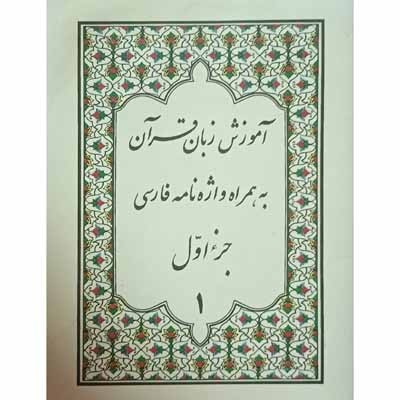 آموزش زبان قرآن
به همراه واژه نامه فارسی
جزء اوّل
۱